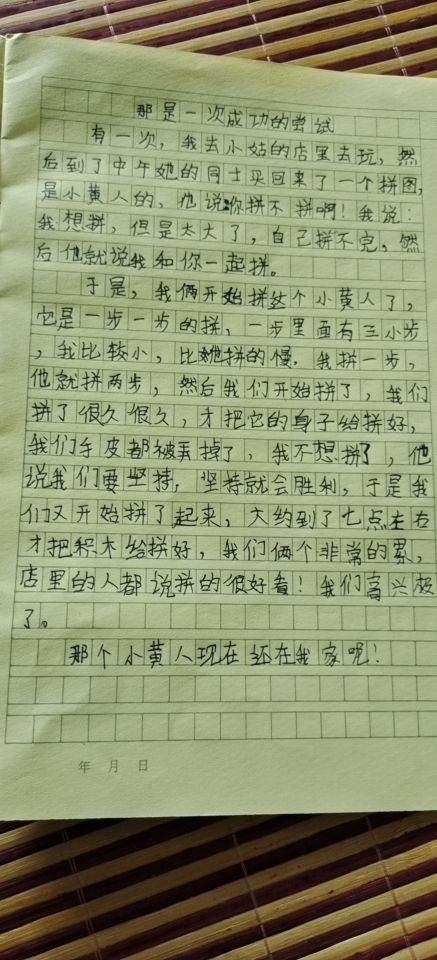 那是一次成功的尝试
有一次，我去小姑的店里去玩，然
后到了中午她的同士买回来了一个拼图，
是小黄人的，他说：你拼不拼啊！我说：
我想拼，但是太大了，自己拼不完，然
后他就说我和你一起拼。
于是，我俩开始拼这个小黄人了，
它是一步一步的拼，一步里面有三小步
，我比较小，比她拼的慢，我拼一步，
他就拼两步，然后我们开始拼了，我们
拼了很久很久，才把它的身子给拼好，
我们手皮都被弄掉了，我不想拼了，他
说我们要坚持，坚持就会胜利，于是我
们又开始拼了起来，大约到了七点左右
才把积木给拼好，我们俩个非常的累，
店里的人都说拼的很好看！我们高兴极
了。
那个小黄人现在还在我家呢！
年 月 日